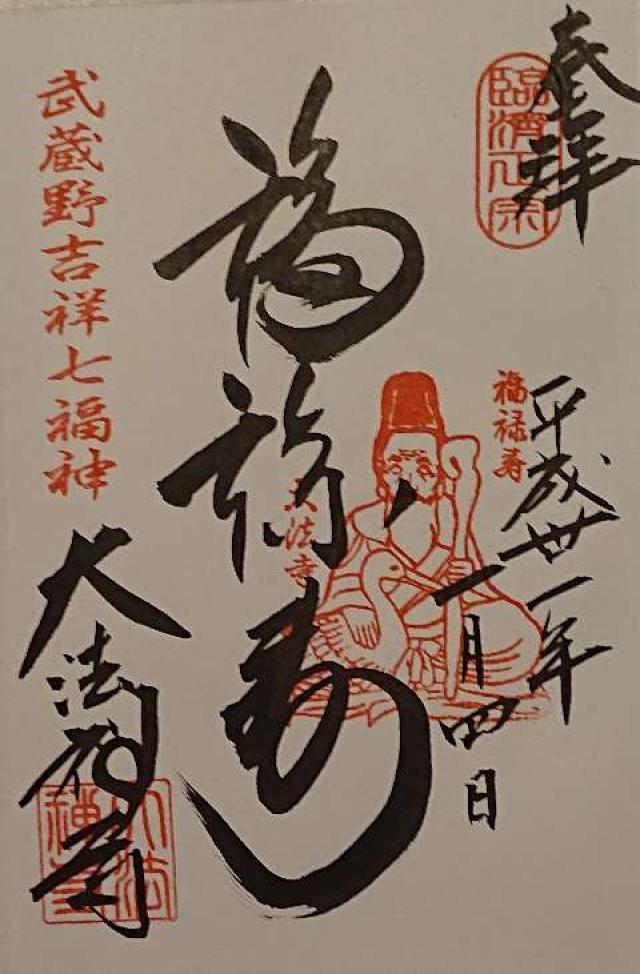 奉拝
臨濟正宗
平成卅一年
一月四日
福禄寿
福禄寿
大法寺
武蔵野吉祥七福神
大法禅寺
大法禅寺